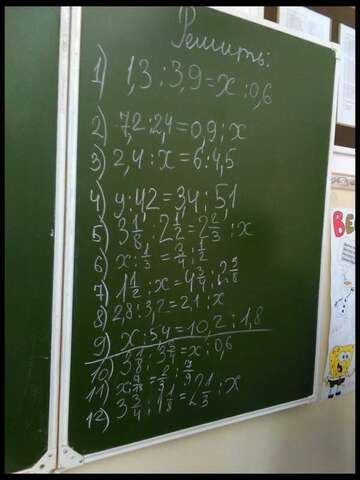 Решить:
1) 1,3 : 3,9 = x : 0,6
2) 7,2 : 2,4 = 0,9 : x
3) 2,4 : x = 6 : 4,5
4) y : 42 = 3,4 : 51
5) 3 1/8 : 2 1/2 = 2 2/3 : x
6) x : 1/3 = 3/4 : 1/2
7) 1 1/2 : x = 4 3/4 : 2 5/8
8) 2,8 : 3,2 = 2,1 : x
9) x : 5,4 = 10,2 : 1,8
10) : = x : 0,6
11) x :
12) 3 3/4 : 1 1/8 = 2 1/3 : x
ВЕ